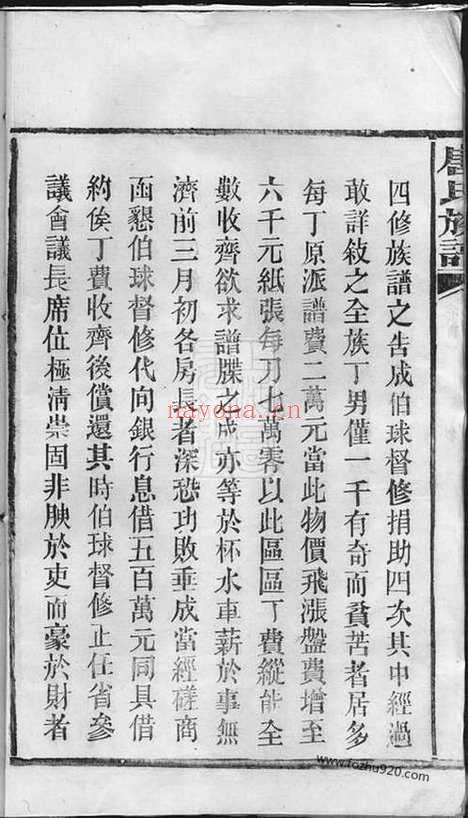 唐氏族譜
四修族譜之告成伯球督修捐助四次其中經過
敢詳敍之全族丁男僅一千有奇而貧苦者居多
每丁原派譜費二萬元當此物價飛漲盤費增至
六千元紙張每刀七萬零以此區區丁費縱能全
數收齊欲求譜牒之成亦等於杯水車薪於事無
濟前三月初各房長者深恐功敗垂成當經磋商
函懇伯球督修代向銀行息借五百萬元同具借
約俟丁費收齊後償還其時伯球督修止任省參
議會議長席位極清崇固非腴於吏而豪於財者
nayona.cn
www.fozhu920.com